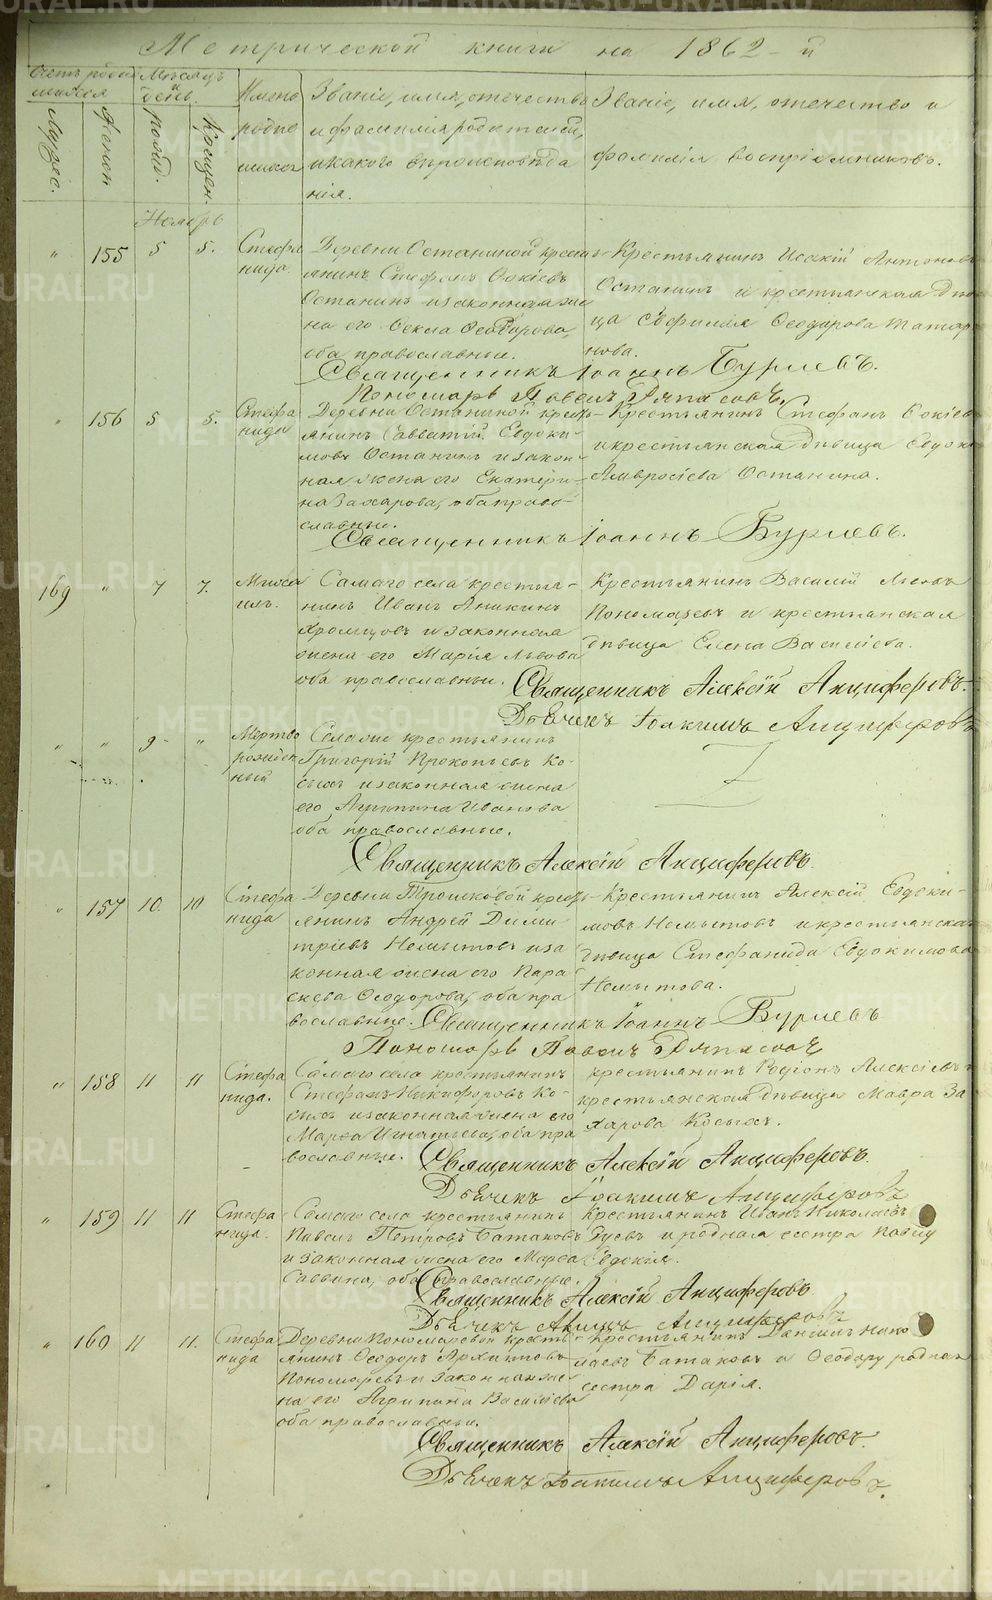 Метрической книги на 1862-й
Счетъ родив
шихся
Мужес.
Женск
Месяцъ
и день
рожд.
Крещен.
Имена
родив
шихся
Званіе, имя, отечество
и фамилія родителей,
и какого вероисповеда
нія.
Званіе, имя, отечество и
фамилія воспріемниковъ.
Ноябрь
" 155 5 5.
Стефа
нида
Деревни Останиной крест
янинъ Стефанъ Фокіевъ
Останинъ и законная же
на его Фекла Феодорова,
оба православные.
Крестьянинъ Исакій Антоновъ
Останинъ и крестьянская деви
ца Софилія Феодорова Татар
нова.
Священникъ Іоаннъ Бурлевъ.
Пономарь Павелъ Ляпасовъ.
" 156 5 5.
Стефа
нида
Деревни Останиной крест
янинъ Савватій Евдоки-
мовъ Останинъ и закон-
ная жена его Екатери-
на Захарова, оба право-
славные.
Крестьянинъ Стефанъ Фокіев
и крестьянская девица Евдок
Амвросіева Останина.
Священникъ Іоаннъ Бурлевъ.
169 " 7 7.
Михаи
илъ.
Самаго села крестья-
нинъ Иванъ Аникинъ
Хромцовъ и законная
жена его Марія Львова
оба православныи.
Крестьянинъ Василій Львовъ
Пономаревъ и крестьянская
девица Елена Васильева.
Священникъ Алексій Анциферовъ.
Дьячекъ Іоакимъ Анциферовъ
" " 9 "
Мертво
рожден
ный
Села же крестьянинъ
Григорій Прокопьевъ Ко-
сыхъ и законная жена
его Агрипина Иванова
оба православные.
Священникъ Алексій Анциферовъ.
" 157 10. 10
Стефа
нида
Деревни Трошковой крест
янинъ Андрей Дими
тріевъ Немытовъ и за
конная жена его Пара
скева Феодорова, оба пра
вославные.
Крестьянинъ Алексій Евдоки-
мовъ Немытовъ и крестьянская
девица Стефанида Евдокимова
Немытова.
Священникъ Іоаннъ Бурлевъ
Пономарь Павелъ Ляпасовъ
" 158 11 11
Стефа
нида.
Самаго села крестьянинъ
Стефанъ Никифоровъ Ко-
сыхъ и законная жена его
Марѳа Игнатьева, оба пра
вославные.
крестьянинъ Родіонъ Алексіевъ и
крестьянская девица Мавра За
харова Косыхъ.
Священникъ Алексій Анциферовъ.
Дьячекъ Іоакимъ Анциферовъ
" 159 11 11
Стефа
нида.
Самаго села крестьянинъ
Павелъ Петровъ Батаковъ
и законная жена его Марѳа
Саввина, оба православные.
Крестьянинъ Иванъ Николаевъ
Гусевъ и родная сестра Павлу
Евдокія.
Священникъ Алексій Анциферовъ
Дьячекъ Акимъ Анциферовъ
" 160 11 11.
Стефа
нида
Деревни Пономаревой кресть
янинъ Феодоръ Архиповъ
Пономаревъ и законная же
на его Агрипина Васильева
оба православныи.
Крестьянинъ Даніилъ Нико
лаевъ Батаковъ и Феодору родная
сестра Дарія.
Священникъ Алексій Анциферовъ.
Дьячекъ Іоакимъ Анциферовъ.
METRIKI.GASO-URAL.RU